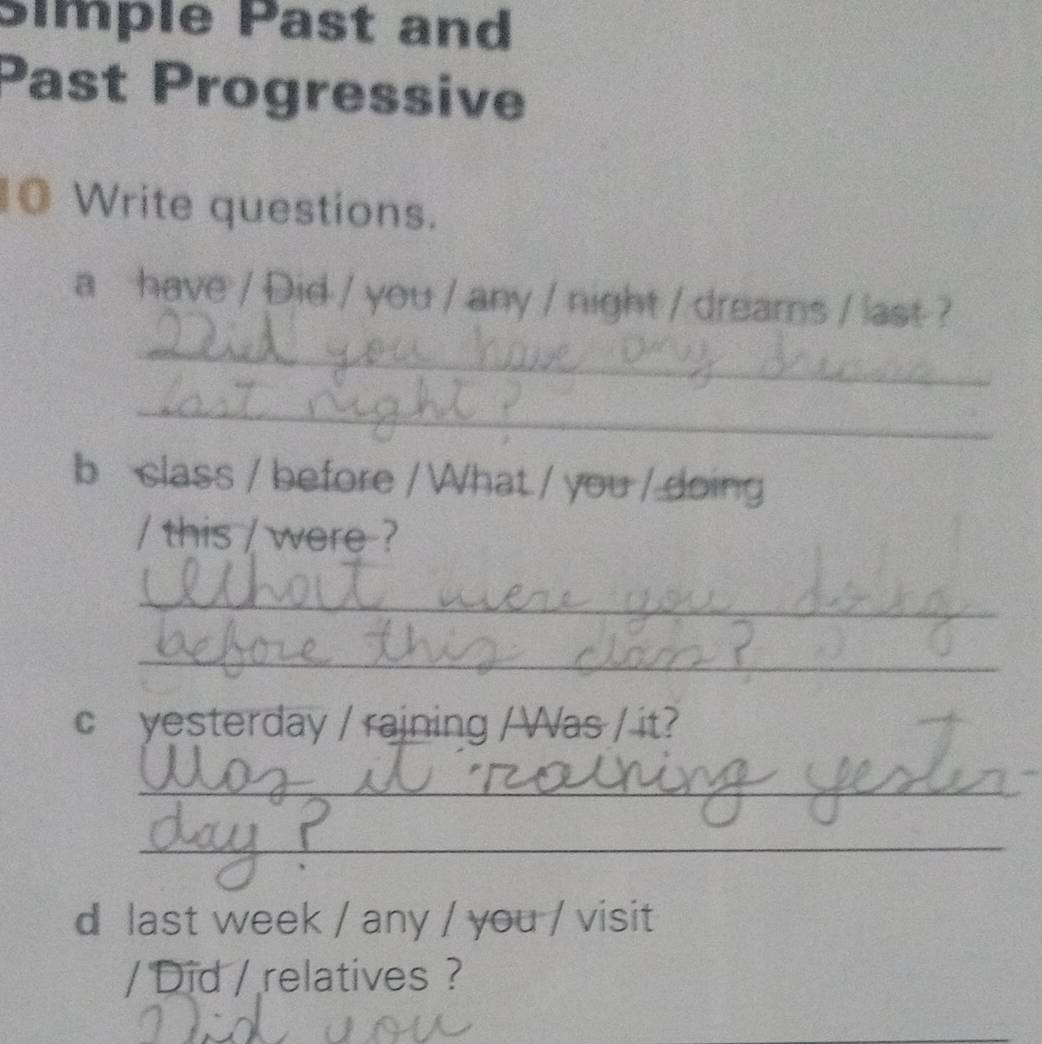 Simple Past and
Past Progressive
10 Write questions.
a have / Did / you / any / night / dreams / last ?
Did you have any dreams
last night?
b class / before / What / you / doing
/ this / were ?
What were you doing
before this class?
c yesterday / raining / Was / it?
Was it raining yester-
day?
d last week / any / you / visit
/ Did / relatives ?
Did you